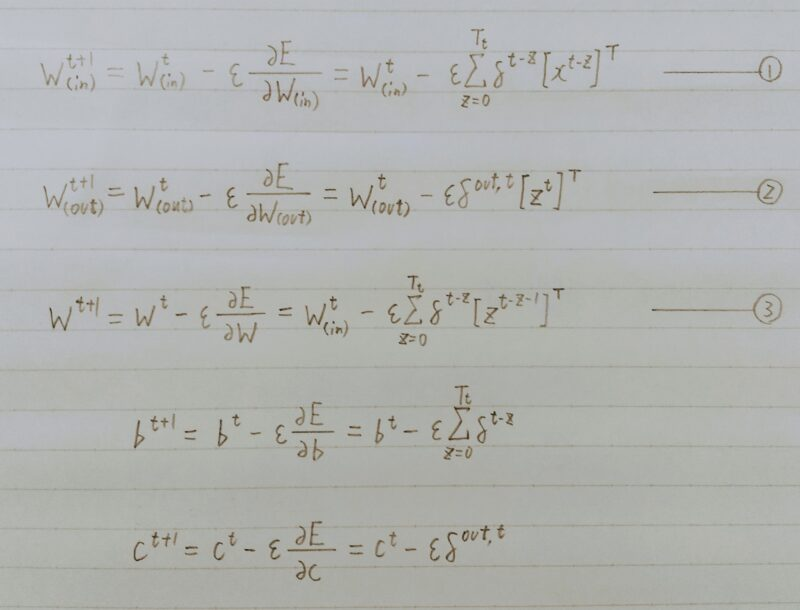 W_{(in)}^{t+1} = W_{(in)}^{t} - ε \frac{∂E}{∂W_{(in)}} = W_{(in)}^{t} - ε \sum_{z=0}^{T_t} δ^{t-z} [x^{t-z}]^T ——— ①
W_{(out)}^{t+1} = W_{(out)}^{t} - ε \frac{∂E}{∂W_{(out)}} = W_{(out)}^{t} - ε δ^{out,t} [z^t]^T ——— ②
W^{t+1} = W^t - ε \frac{∂E}{∂W} = W_{(in)}^{t} - ε \sum_{z=0}^{T_t} δ^{t-z} [z^{t-z-1}]^T ——— ③
b^{t+1} = b^t - ε \frac{∂E}{∂b} = b^t - ε \sum_{z=0}^{T_t} δ^{t-z}
c^{t+1} = c^t - ε \frac{∂E}{∂c} = c^t - ε δ^{out,t}